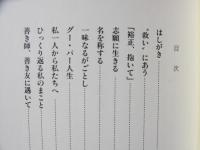 目次
はしがき
“救い”にあう
「裕正、抱いて」
志願に生きる
名を称する
一味なるがごとし
グー・パー人生
私一人から私たちへ
ひっくり返る私のまこと
善き師、善き友に遇いて